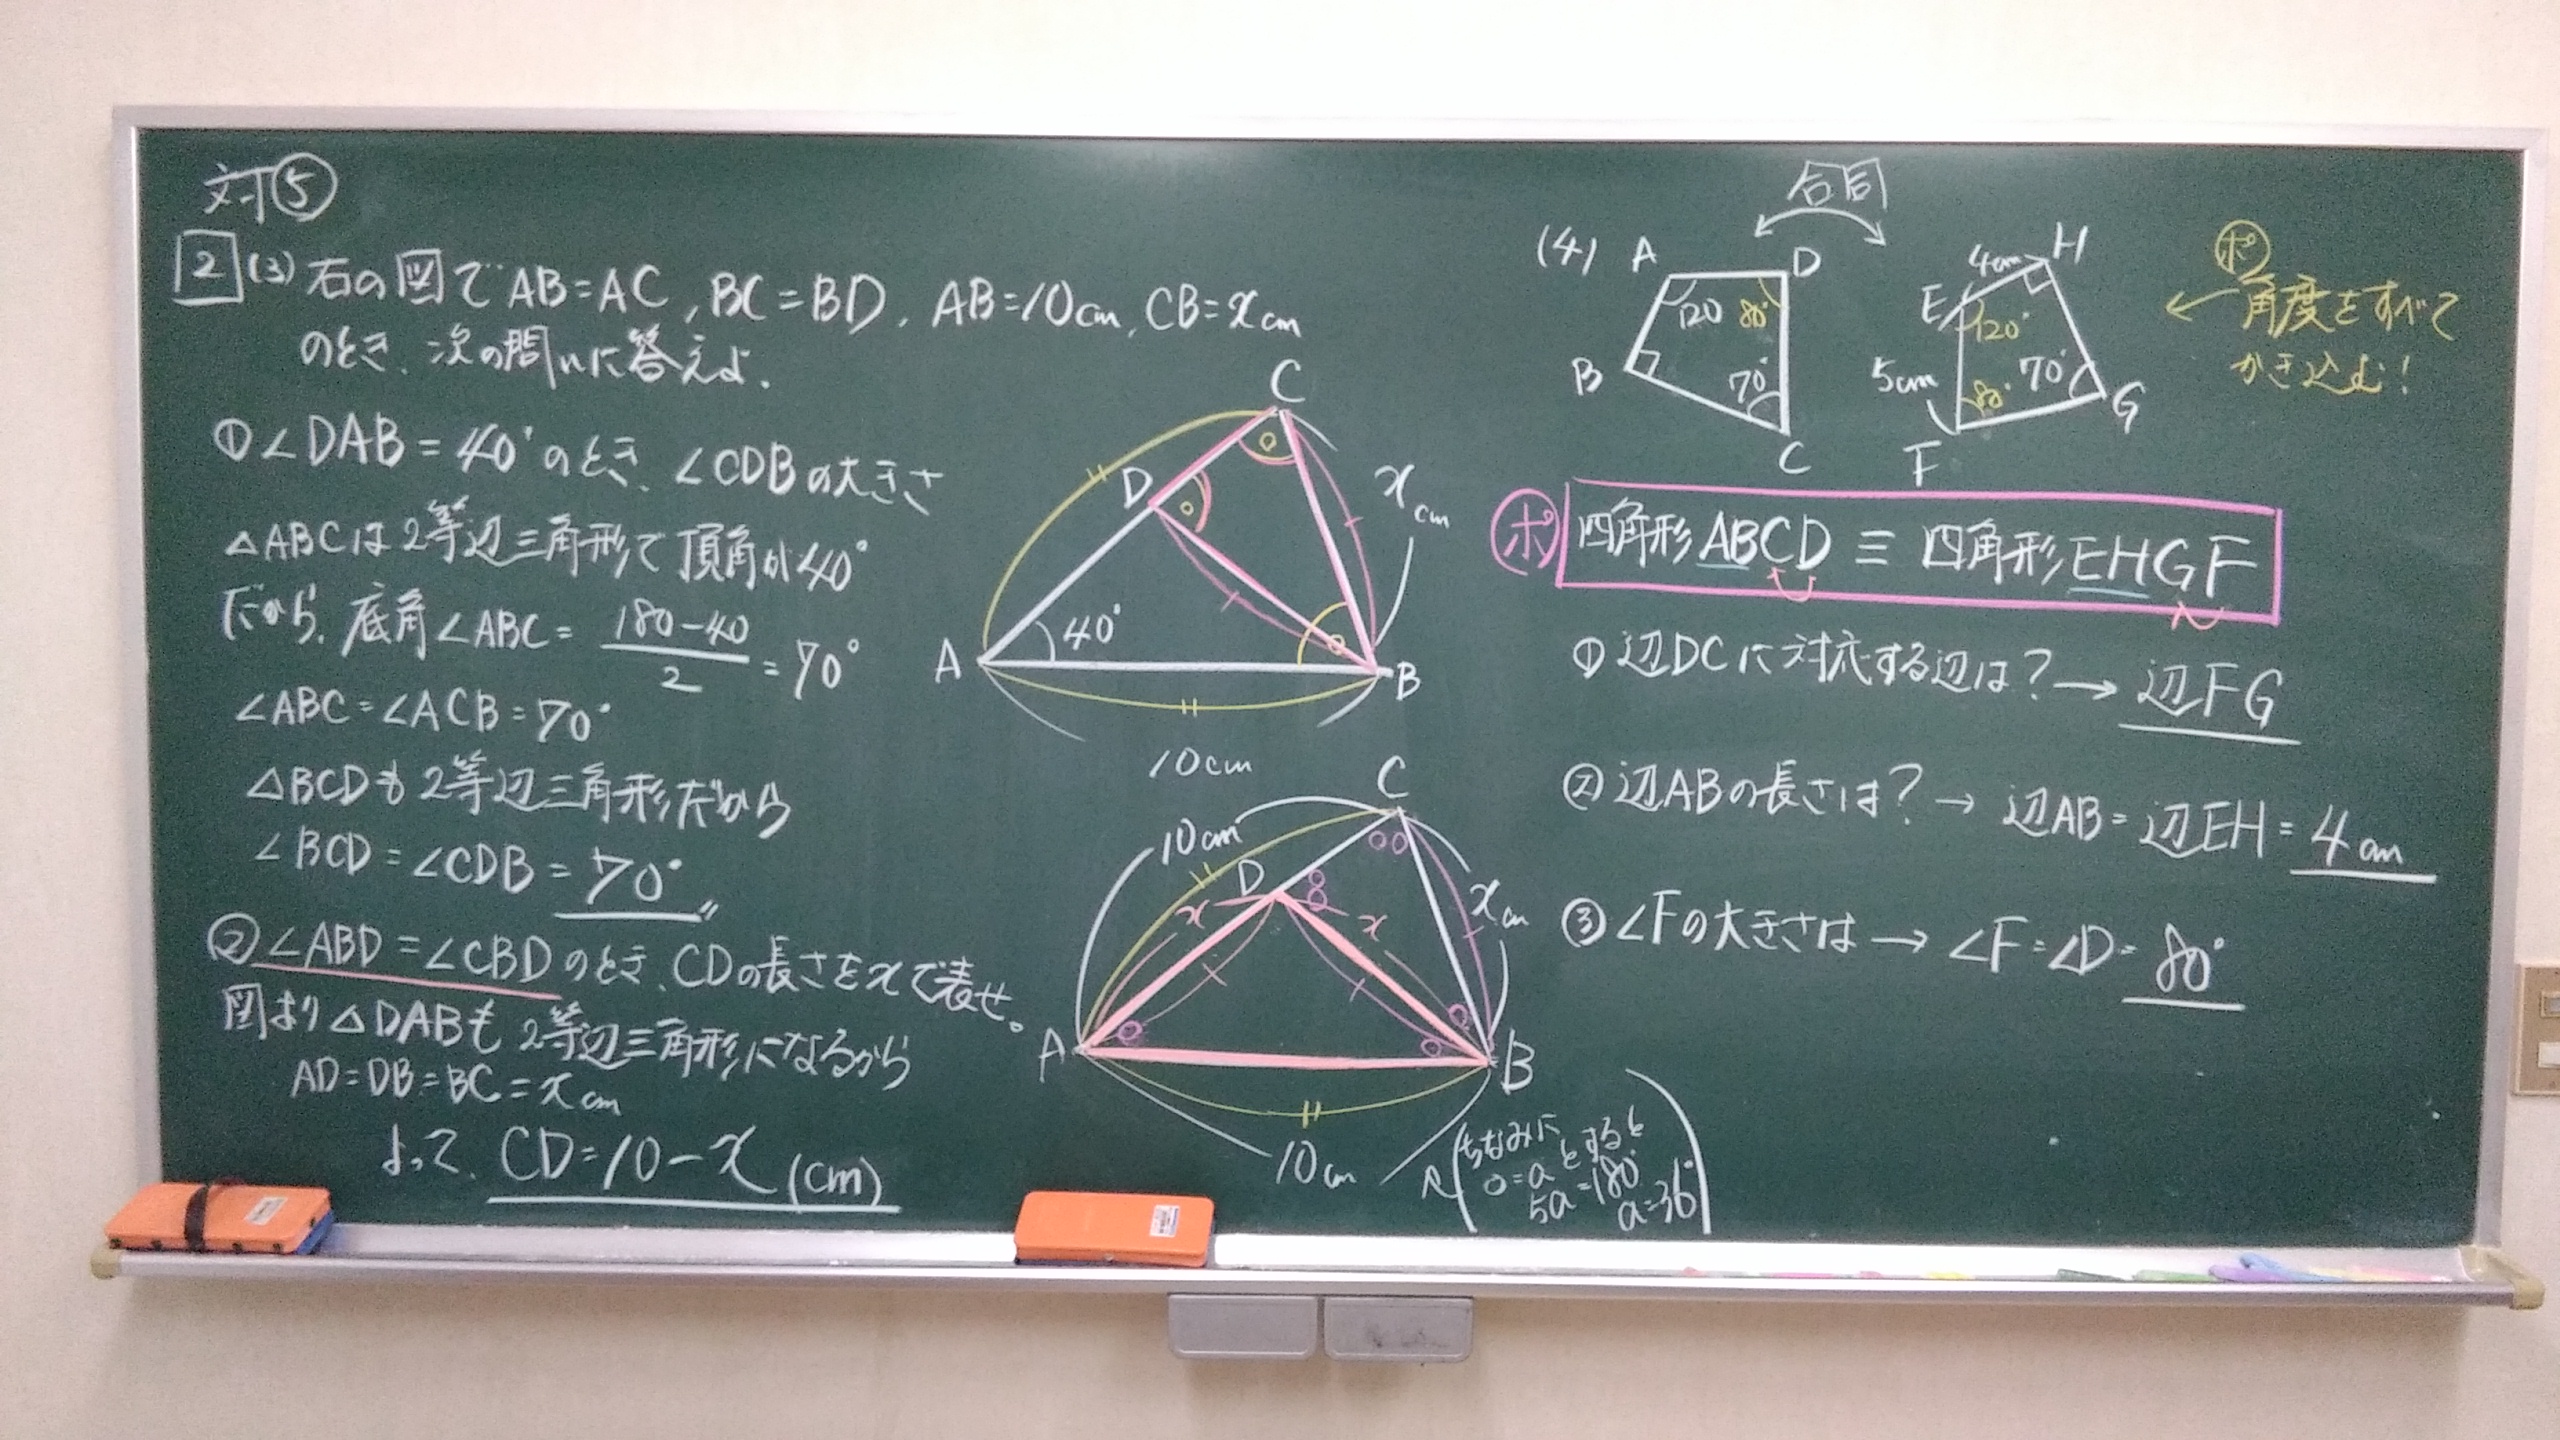 対⑤
2 (3) 右の図で AB=AC, BC=BD, AB=10cm, CB=xcm
のとき、次の問いに答えよ.
①∠DAB=40°のとき、∠CDBの大きさ
△ABCは2等辺三角形で頂角が40°
だから、底角∠ABC= 180-40/2 =70°
∠ABC=∠ACB=70°
△BCDも2等辺三角形だから
∠BCD=∠CDB=70°〃
②∠ABD=∠CBDのとき、CDの長さをxで表せ。
図より△DABも2等辺三角形になるから
AD=DB=BC=xcm
よって、CD=10-x (cm)
C
D
x cm
40°
A
B
10cm
C
10cm
D
x
x
x cm
A
B
10cm
ちなみに
o=aとすると
5a=180°
a=36°
合同
(4) A D
120 80°
B
70°
C
H
4cm
E
120°
5cm
80° 70°
G
F
ポ
← 角度をすべて
かき込む!
ポ 四角形ABCD ≡ 四角形EHGF
①辺DCに対応する辺は?→ 辺FG
②辺ABの長さは?→ 辺AB=辺EH=4cm
③∠Fの大きさは→ ∠F=∠D=80°